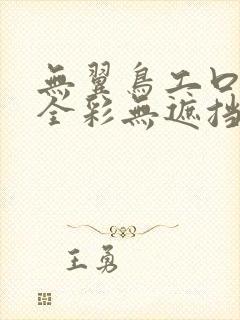 無翼鳥工口
全彩無遮挡
王勇